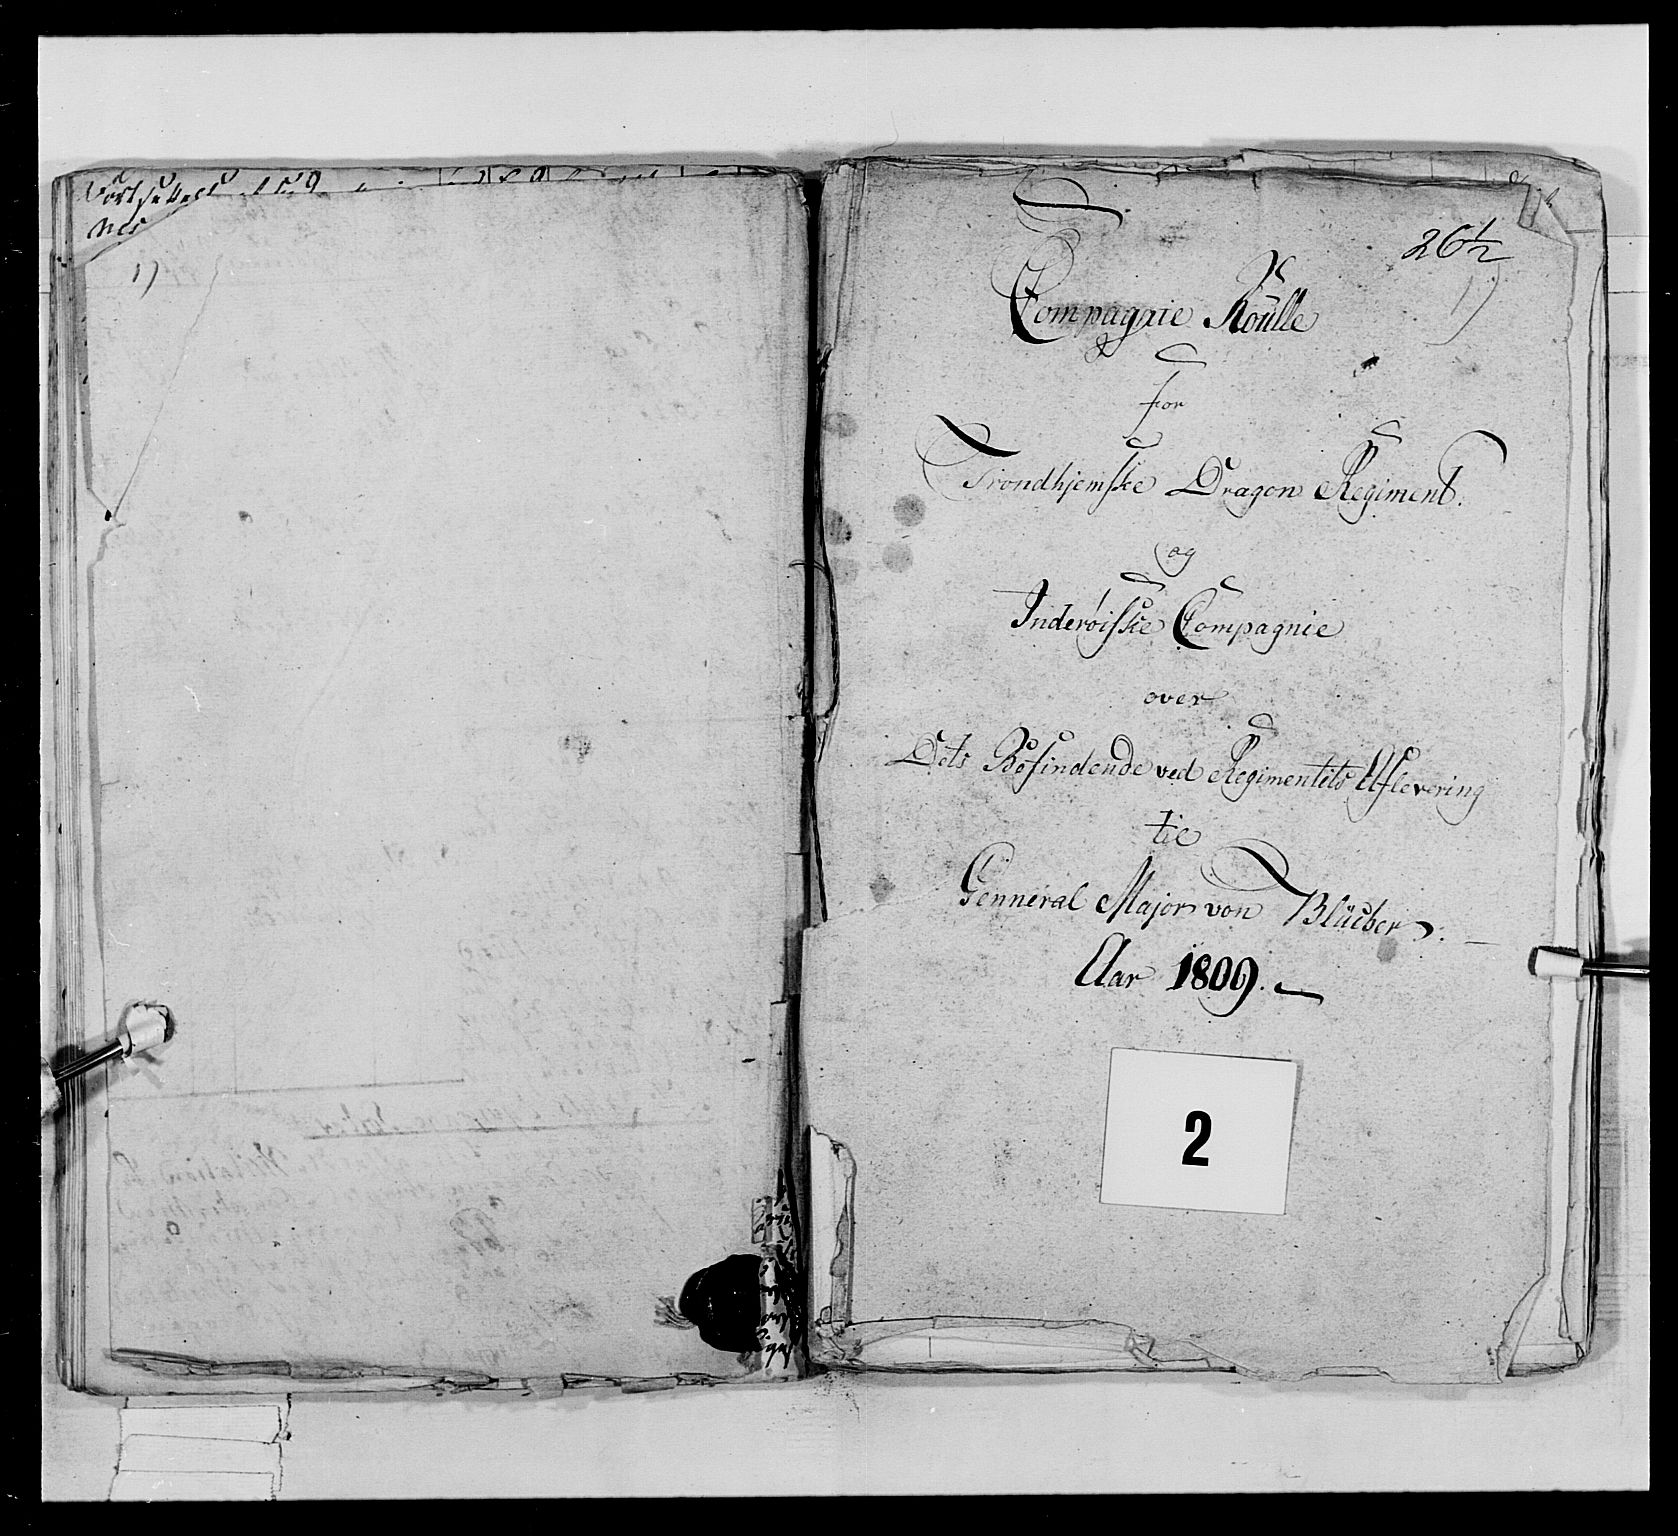 1)
26½
1)
Compagnie Roulle
for
Trondhjemske Dragon Regiment.
og
Inderøiske Compagnie
over
Dets Befindende ved Regimentets Aflevering
tie
Genneral Major von Blücher.
Aar 1809.
2